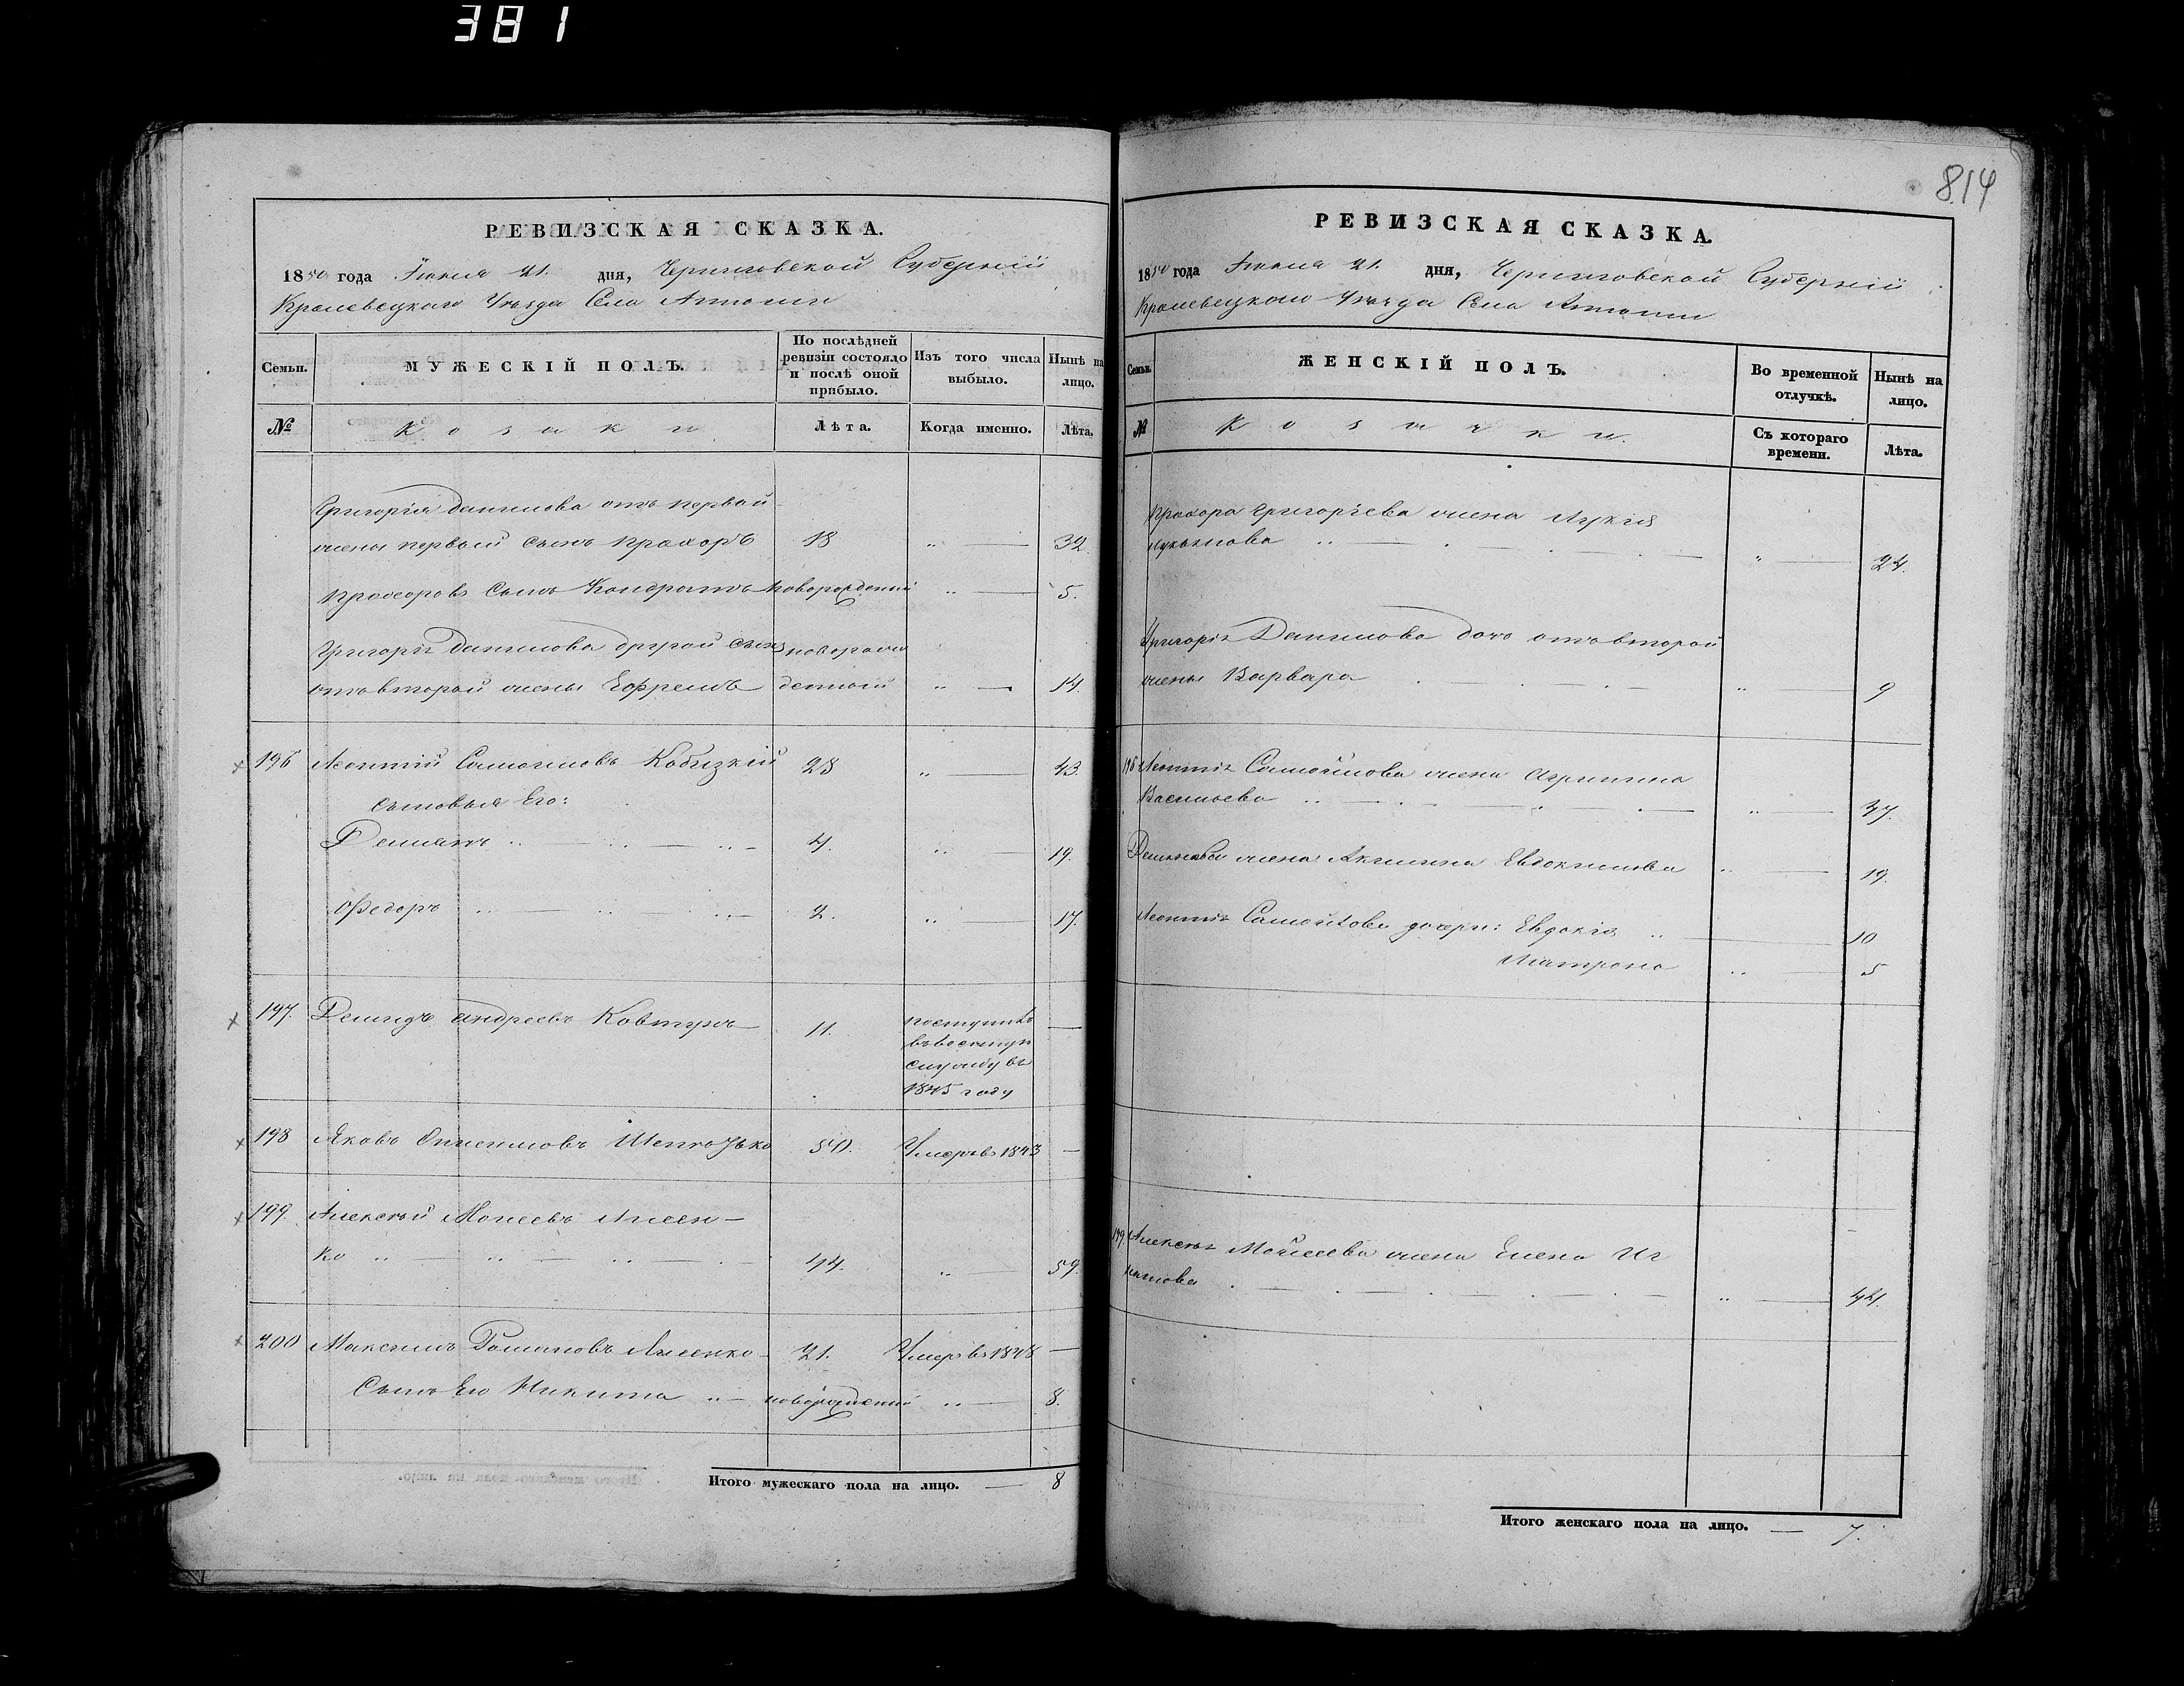 381
814
РЕВИЗСКАЯ СКАЗКА.
1850 года Іюня 21. дня, Черниговской Губерніи
Кролевецкого Уѣзда Села
Семьи.
МУЖЕСКІЙ ПОЛЪ.
По послѣдней
ревизіи состояло
и послѣ оной
прибыло.
Изъ того числа
выбыло.
Нынѣ на
лицо.
№
Козаки
Лѣта.
Когда именно.
Лѣта.
Григорія Данилова отъ первой
жены первый сынъ Прохоръ 18 „ — 32.
Прохоровъ сынъ Кондратъ новорожденный „ — 5.
Григорія Данилова другой сынъ новорож
отъ второй жены Ефремъ денный „ — 14.
196 Леонтій Самойловъ 28 „ — 43.
сыновья Его:
Демьянъ „ — „ — „ — 4. „ — 19.
Федоръ „ — „ — „ — 2. „ — 17.
197. Демидъ Андреевъ Ковтунъ — 11. поступилъ —
въ военную
службу въ
1845 году
198 Яковъ 50. Умеръ въ 1843 —
199. Алексѣй Моисеевъ Лисен-
ко „ — „ — „ — 44. „ — 59.
200 Максимъ Романовъ Лисенко 21. Умеръ въ 1848 —
Сынъ Его Никита „ — новорожденный „ — 8.
Итого мужескаго пола на лицо. — 8
РЕВИЗСКАЯ СКАЗКА.
1850 года Іюня 21. дня, Черниговской Губерніи
Кролевецкого Уѣзда Села
Семьи.
ЖЕНСКІЙ ПОЛЪ.
Во временной
отлучкѣ.
Нынѣ на
лицо.
№
Козачки.
Съ котораго
времени.
Лѣта.
Прохора Григорьева жена
Лукьянова „ — 24.
Григорія Данилова дочь отъ второй
жены Варвара „ — 9
196 Леонтія Самойлова жена Агрипина
Васильева „ — „ — 37.
Демьянова жена Акилина Евдокимова „ — 19.
Леонтія Самойлова дочери: Евдокія „ — 10
Матрона „ — 5
199 Алексѣя Моисеева жена Елена Иг
натова „ — 44.
Итого женскаго пола на лицо. — 7.